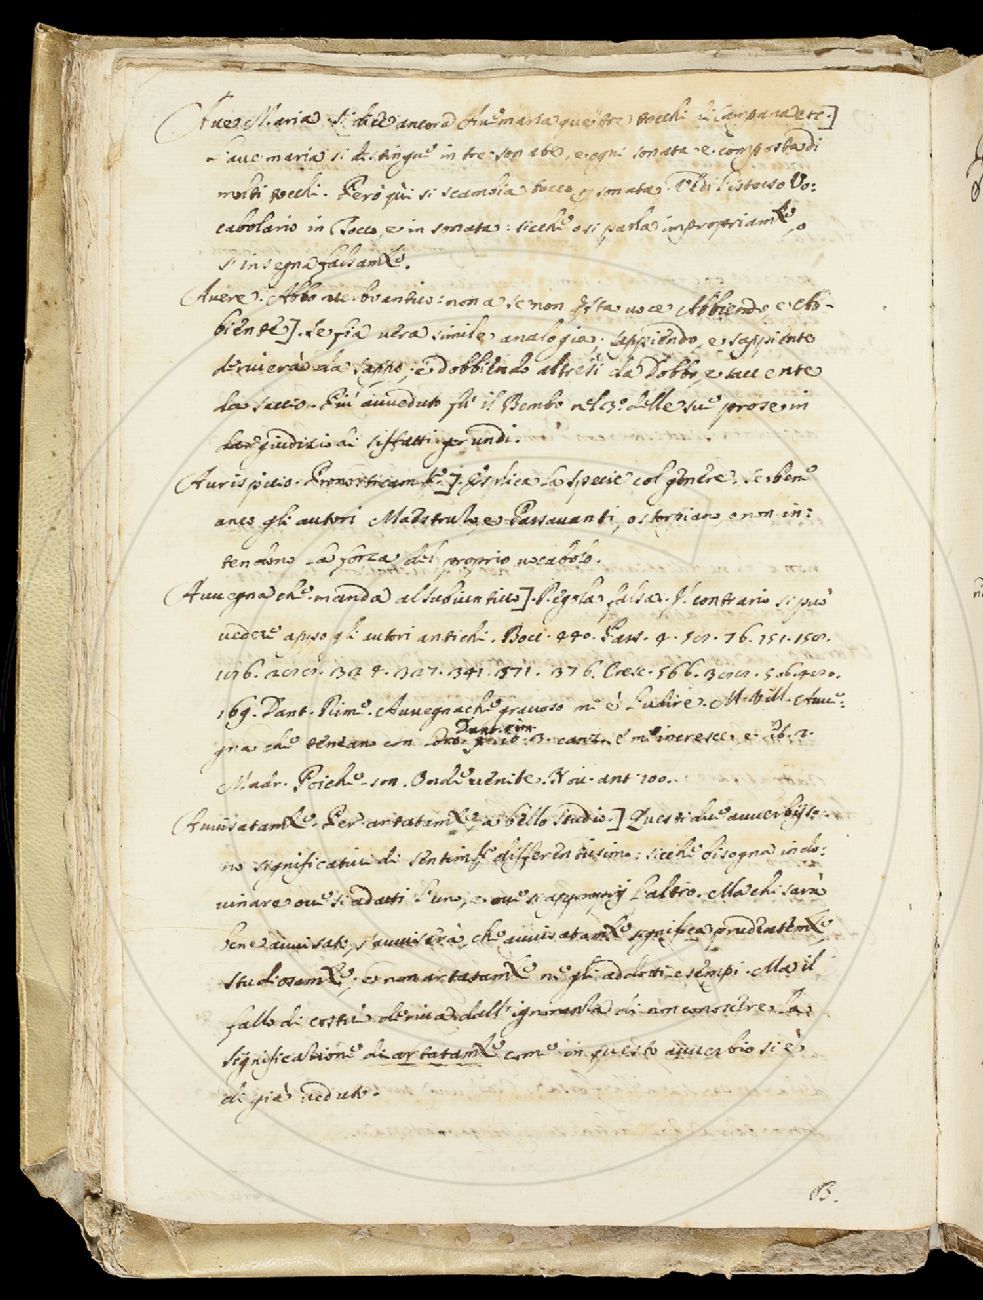 Aue Maria. si dice ancora Aue maria quei tre tocchi di Campana etc.]
L'aue maria si distingue in tre sonate, e ogni sonata e composta di
molti tocchi. Però qui si scambia tocco p sonata. Vedi l'istesso Vo:
cabolario in Tocco, e in sonata: sicche o si parla impropriamte, o
s'insegna falsamte.
Auere. Abbo verbo antico: non a se non qsta uoce Abbiendo, e Ab-
biente]. Se fia uera simile analogia, sappiendo, e sappiente
deriuerà da sappo, e dobbiendo altresi da Dobbo, e saccente
da saccio. Più auueduto fu il Bembo nel 3º. delle sue prose in
dar giudizio di siffatti gerundi.
Aurispicio. Pronosticamto.] Esplica la specie col genere. Se bene
anco gli autori Maestruzo, e Passauanti, o storpiano, o non in:
tendono la forza del proprio uocabolo.
Auuegna che. manda al subiuntiuo]. Regola falsa. Il contrario si può
uedere apso gli autori antichi. Bocc. 440. Pass. 4. 76. 151.
324. 327. 341. 371. 376. Cresc. 566.
169. Dant. Rime. Auuegnache grauoso me è l'udire. M. Vill. Auue:
gna che temeano con Dant. rim. 3. canz. E' m'incresce. e
Madr. Poiche. son. Onde uenite. Nou. ant. 100.
Auuisatamte. Per artatamte, a bello studio.] Questi due auuerbij so:
no significatiui di sentimti differentissimi: sicche bisogna indo:
uinare oue si adatti l'uno, e oue si approprij l'altro. Ma chi sarà
bene auuisato, s'auuiserà, che auuisatamte significa prudentemte,
studiosamte, e non artatamte ne gli addotti esempi. Ma il
fallo di costui deriua dall'ignoranza di non conoscere la
significazione di artatamte come in questo auuerbio si è
di già ueduto.
B.